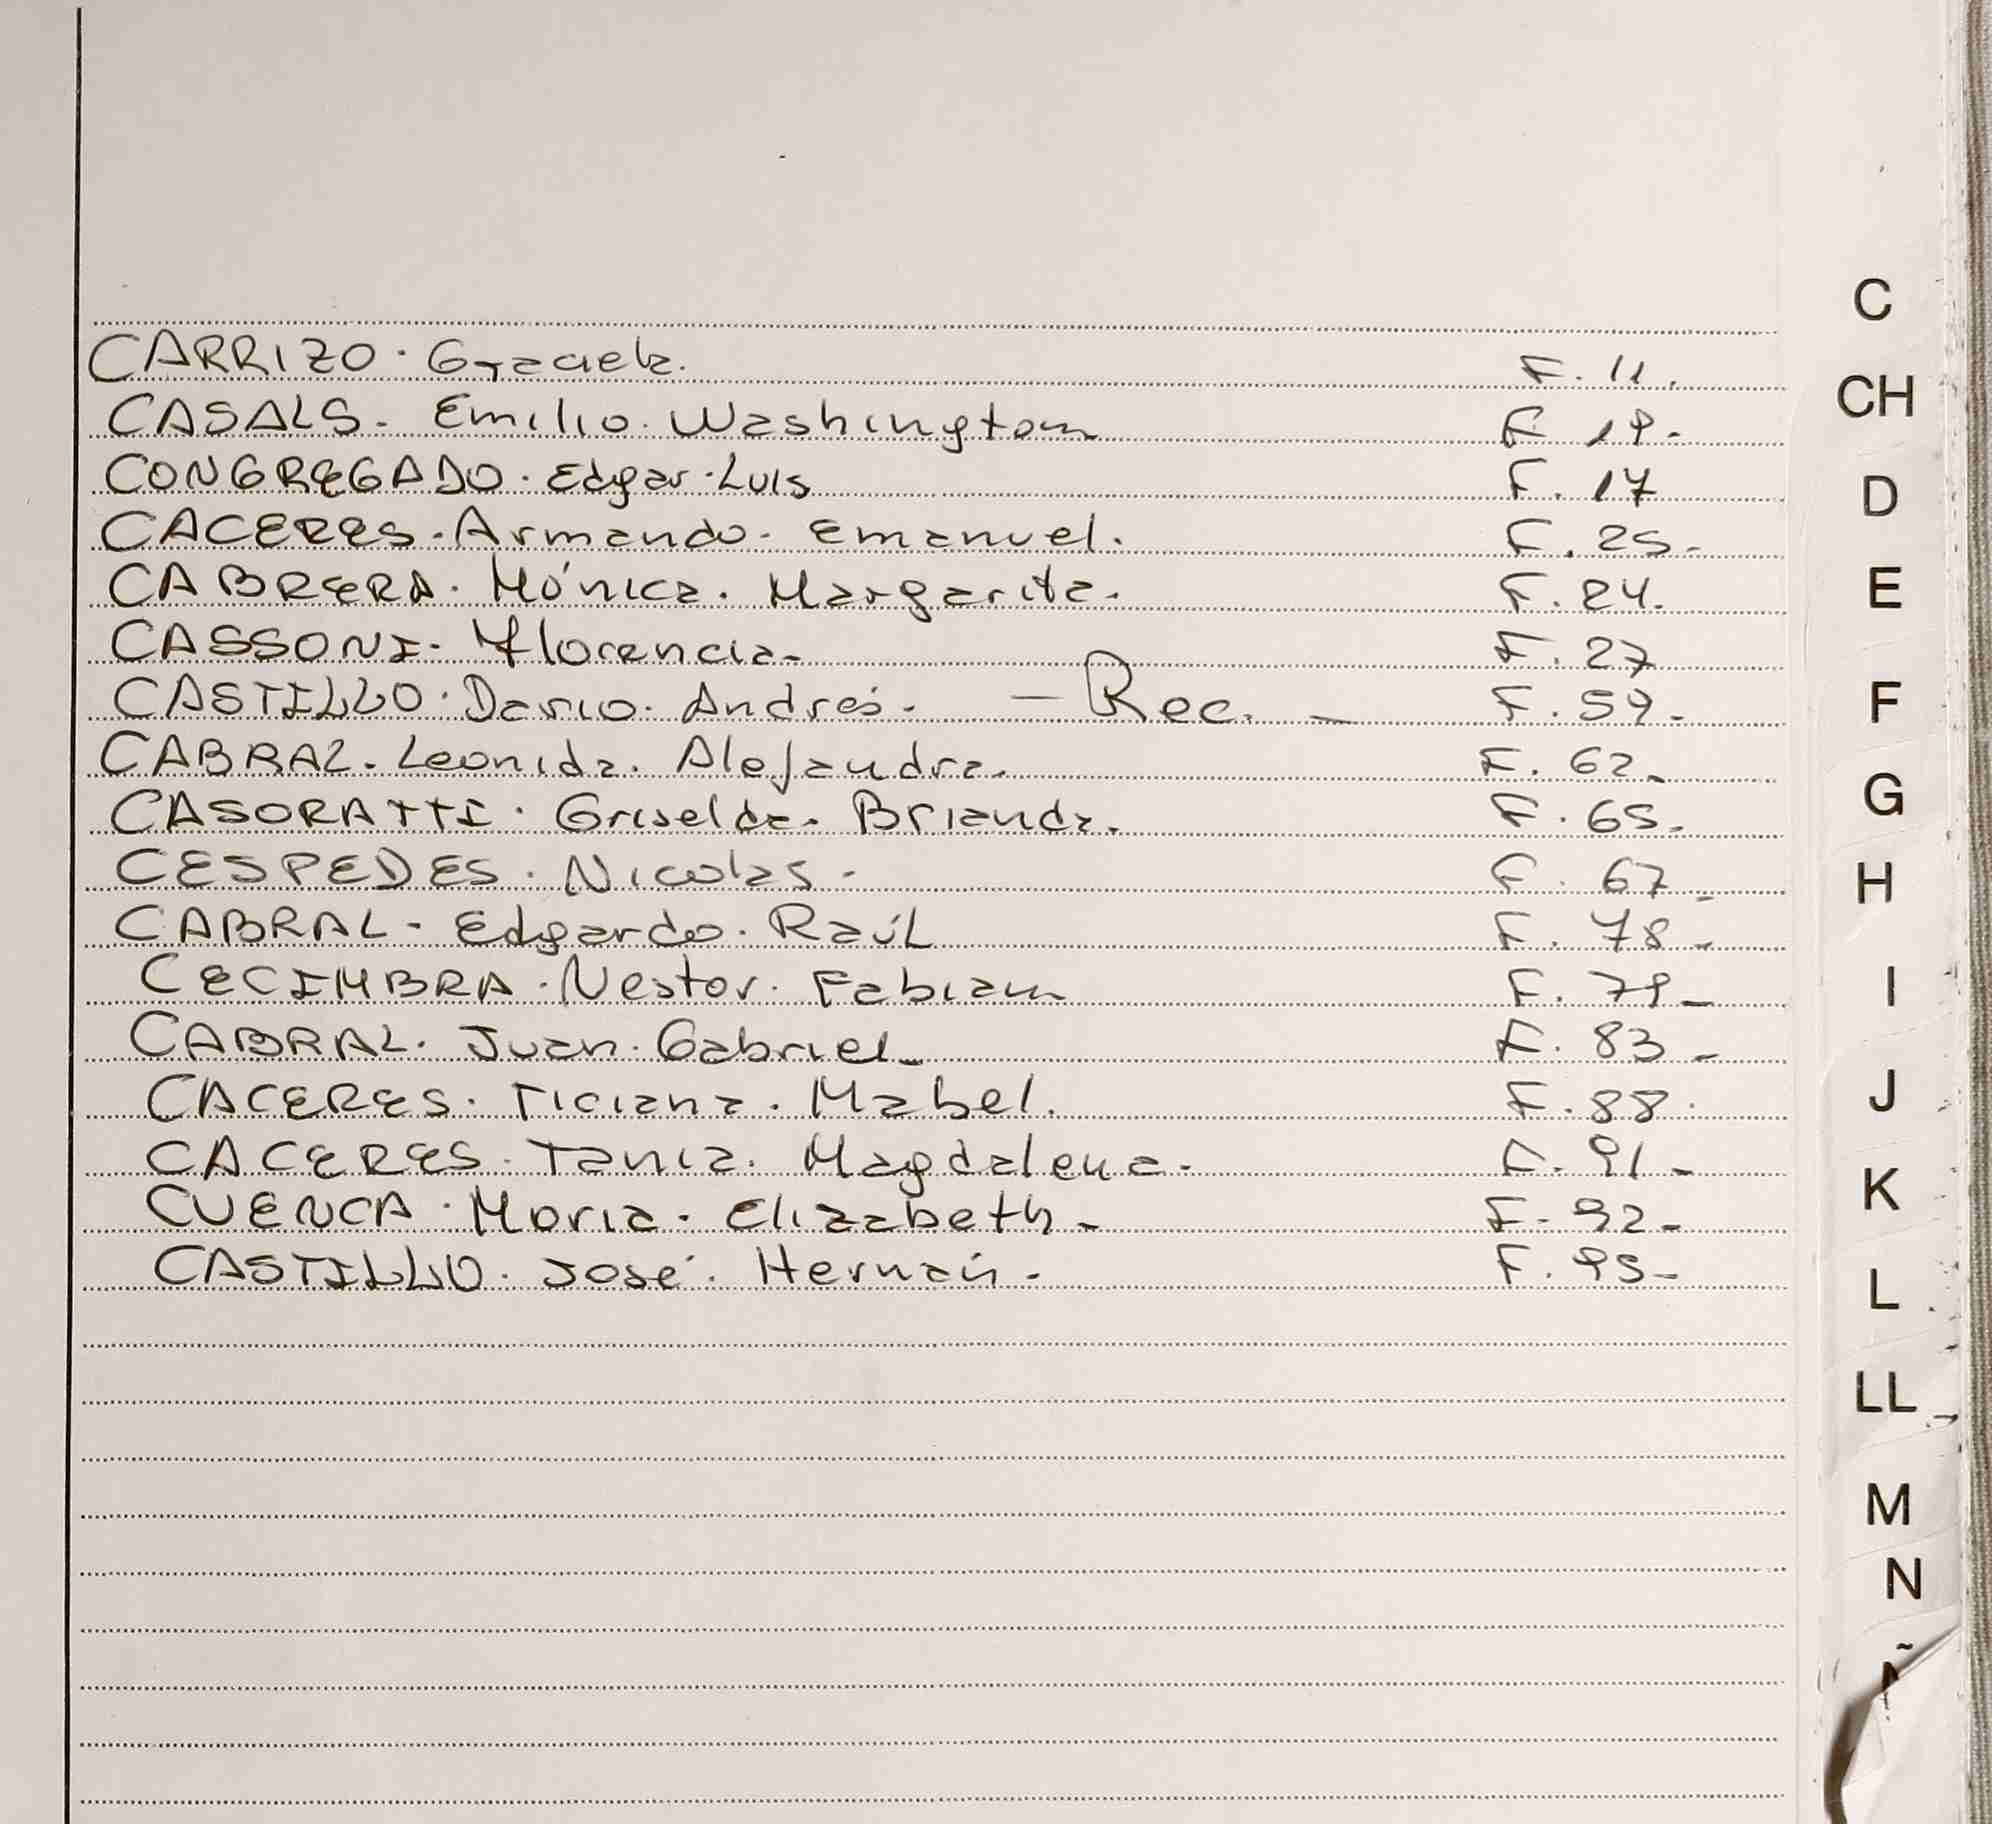 CARRIZO. Graciela. F. 11.
CASALS. Emilio. Washington F 19.
CONGREGADO. Edgar. Luis F. 17
CACERES. Armando. Emanuel. F. 25.
CABRERA. Mónica. Margarita. F. 24.
CASSONI. Florencia. F. 27
CASTILLO. Dario. Andrés. — Rec. — F. 59.
CABRAL. Leonida. Alejandra. F. 62.
CASORATTI. Griselda. Brianda. F. 65.
CESPEDES. Nicolas. F. 67.
CABRAL. Edgardo. Raúl F. 78.
CECIMBRA. Nestor. Fabian F. 79.
CABRAL. Juan. Gabriel. F. 83.
CACERES. Ticiana. Mabel. F. 88.
CACERES. Tania. Magdalena. F. 91.
CUENCA. Moria. Elizabeth. F. 92.
CASTILLO. José. Hernán. F. 95.
C
CH
D
E
F
G
H
I
J
K
L
LL
M
N
Ñ